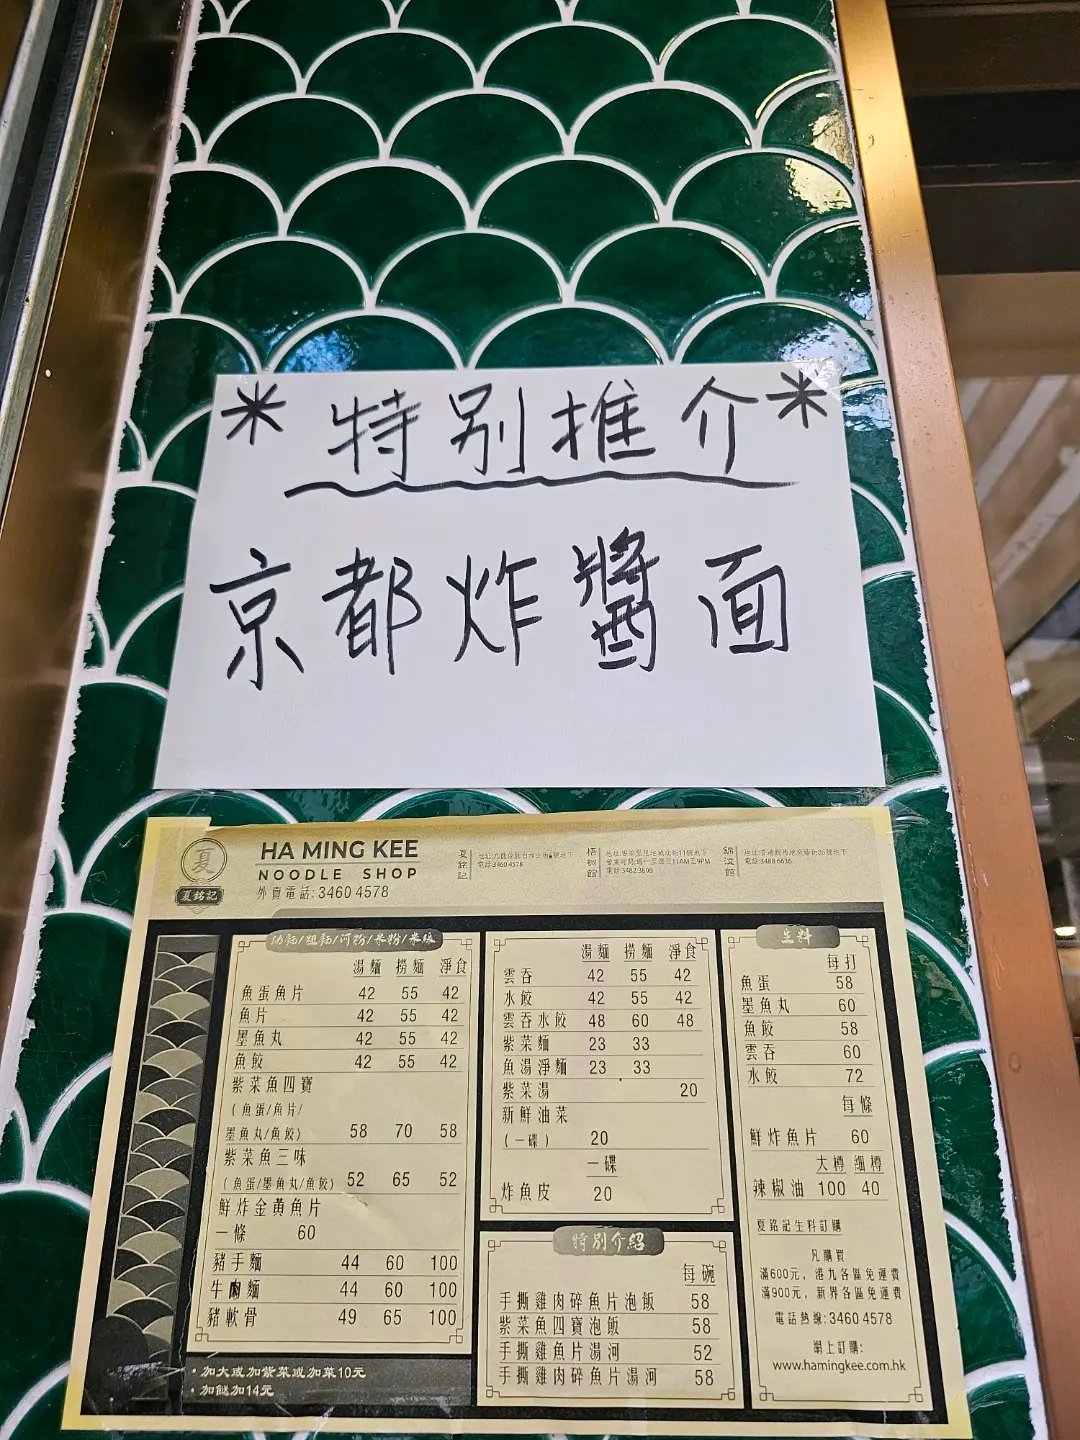 * 特別推介 *
京都炸醬面
夏
夏銘記
HA MING KEE
NOODLE SHOP
外賣電話:3460 4578
夏銘記
電話:3460 4578
幼麵/粗麵/河粉/米粉/米線
湯麵 撈麵 淨食
魚蛋魚片 42 55 42
魚片 42 55 42
墨魚丸 42 55 42
魚餃 42 55 42
紫菜魚四寶
(魚蛋/魚片/
墨魚丸/魚餃) 58 70 58
紫菜魚三味
(魚蛋/墨魚丸/魚餃) 52 65 52
鮮炸金黃魚片
一條 60
豬手麵 44 60 100
牛腩麵 44 60 100
豬軟骨 49 65 100
・加大或加紫菜或加菜10元
・加餸加14元
湯麵 撈麵 淨食
雲吞 42 55 42
水餃 42 55 42
雲吞水餃 48 60 48
紫菜麵 23 33
魚湯淨麵 23 33
紫菜湯 20
新鮮油菜
(一碟) 20
一碟
炸魚皮 20
特別介紹
每碗
手撕雞肉碎魚片泡飯 58
紫菜魚四寶泡飯 58
手撕雞魚片湯河 52
手撕雞肉碎魚片湯河 58
生料
每打
魚蛋 58
墨魚丸 60
魚餃 58
雲吞 60
水餃 72
每條
鮮炸魚片 60
大樽 細樽
辣椒油 100 40
夏銘記生料訂購
凡購買
滿600元, 港九各區免運費
滿900元, 新界各區免運費
電話熱線:3460 4578
網上訂購:
www.hamingkee.com.hk